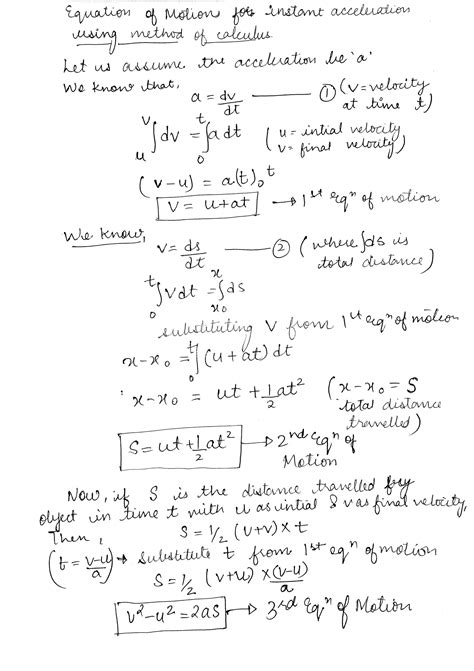 Equation of Motion for Instant acceleration
using method of calculus.
Let us assume the acceleration be 'a'
We know that,
a = dv/dt —— ① (v = velocity at time t)
∫ᵤᵛ dv = ∫₀ᵗ a dt (u = intial velocity, v = final velocity)
(v-u) = a(t)₀ᵗ
v = u+at → 1st eqⁿ of motion
We know, v = ds/dt —— ② (where ∫ds is total distance)
∫₀ᵗ vdt = ∫ₓ₀ˣ ds
substituting v from 1st eqⁿ of motion
x-x₀ = ∫₀ᵗ (u+at) dt
: x-x₀ = ut + 1/2 at² (x-x₀ = S total distance travelled)
S = ut + 1/2 at² → 2nd Eqⁿ of Motion
Now, if S is the distance travelled by
object in time t with u as intial & v as final velocity,
Then, S = 1/2 (u+v) x t
(t = v-u/a) → substitute t from 1st eqⁿ of motion
S = 1/2 (v+u) x (v-u)/a
v²-u² = 2as → 3rd Eqⁿ of Motion